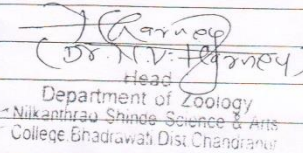 (Dr. N.V. Harney)
Head
Department of Zoology
Nilkanthrao Shinde Science & Arts
College, Bhadrawati Dist Chandrapur